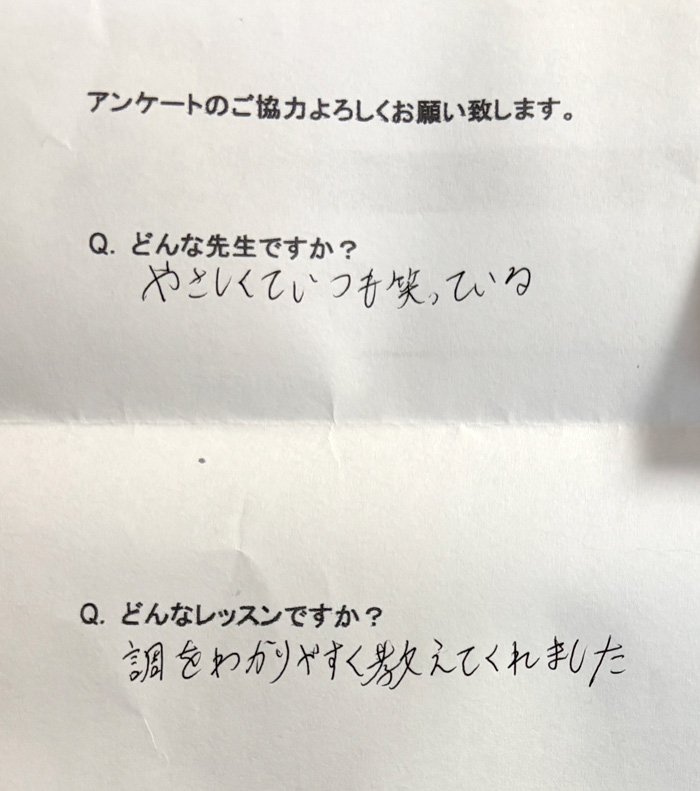 アンケートのご協力よろしくお願い致します。
Q. どんな先生ですか？
やさしくていつも笑っている
Q. どんなレッスンですか？
調をわかりやすく教えてくれました